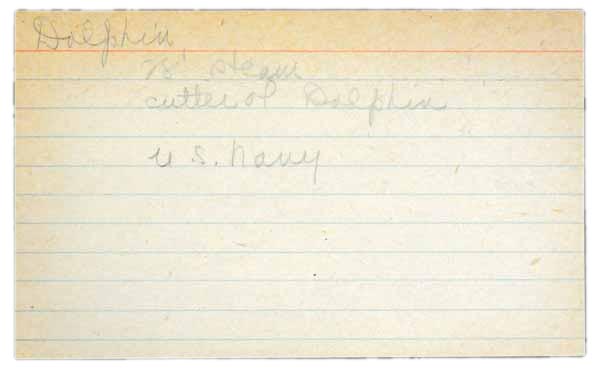 Dolphin
28" steam
cutter of Dolphin
U.S. Navy